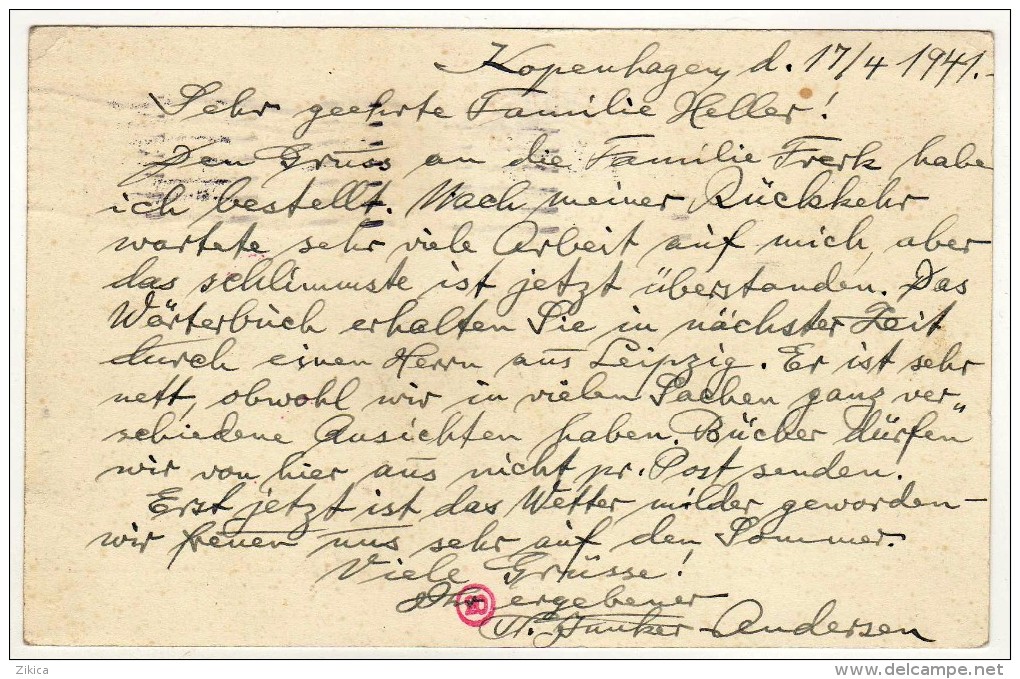 Kopenhagen, d. 17/4 1941.-
Sehr geehrte Familie Heller!
Den Gruss an die Familie Frerk habe
ich bestellt. Nach meiner Rückkehr
wartete sehr viele Arbeit auf mich, aber
das schlimmste ist jetzt überstanden. Das
Wörterbuch erhalten Sie in nächster Zeit
durch einen Herrn aus Leipzig. Er ist sehr
nett, obwohl wir in vielen Sachen ganz ver
schiedene Ansichten haben. Bücher dürfen
wir von hier aus nicht pr. Post senden.
Erst jetzt ist das Wetter milder geworden-
wir freuen uns sehr auf den Sommer.
Viele Grüsse!
ergebener
Junker-Andersen
Zikica
delcampe.net